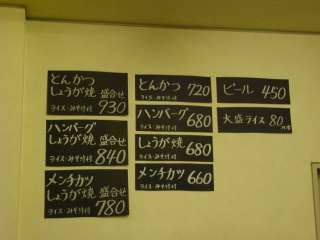 とんかつ
しょうが焼 盛合せ
ライス・みそ汁付
930
ハンバーグ
しょうが焼 盛合せ
ライス・みそ汁付 840
メンチカツ
しょうが焼 盛合せ
ライス・みそ汁付 780
とんかつ 720
ライス・みそ汁付
ハンバーグ
ライス・みそ汁付 680
しょうが焼 680
ライス・みそ汁付
メンチカツ 660
ライス・みそ汁付
ビール 450
大盛ライス 80